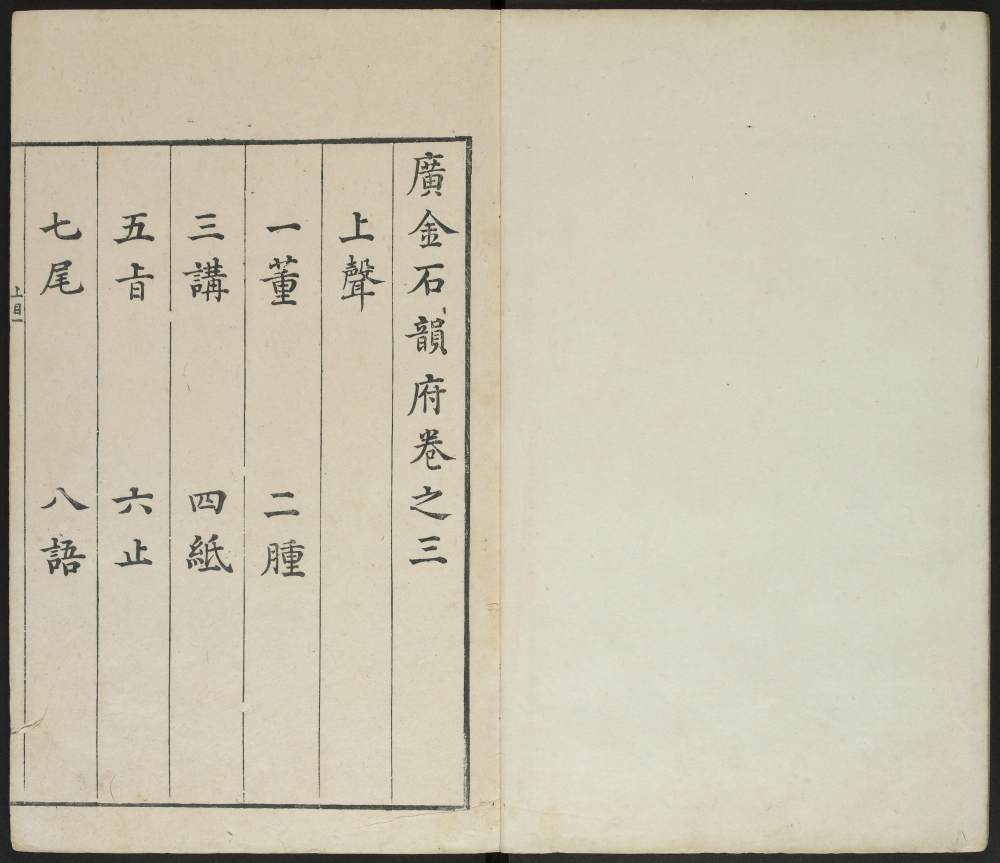 廣金石韻府卷之三
上聲
一董 二腫
三講 四紙
五旨 六止
七尾 八語
上目一